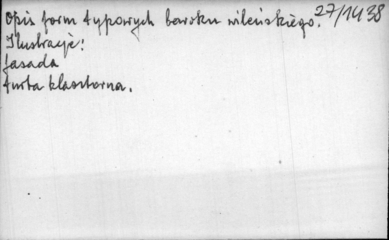 Opis form typowych baroku wileńskiego. 27/1438
Ilustracje:
fasada
furta klasztorna.